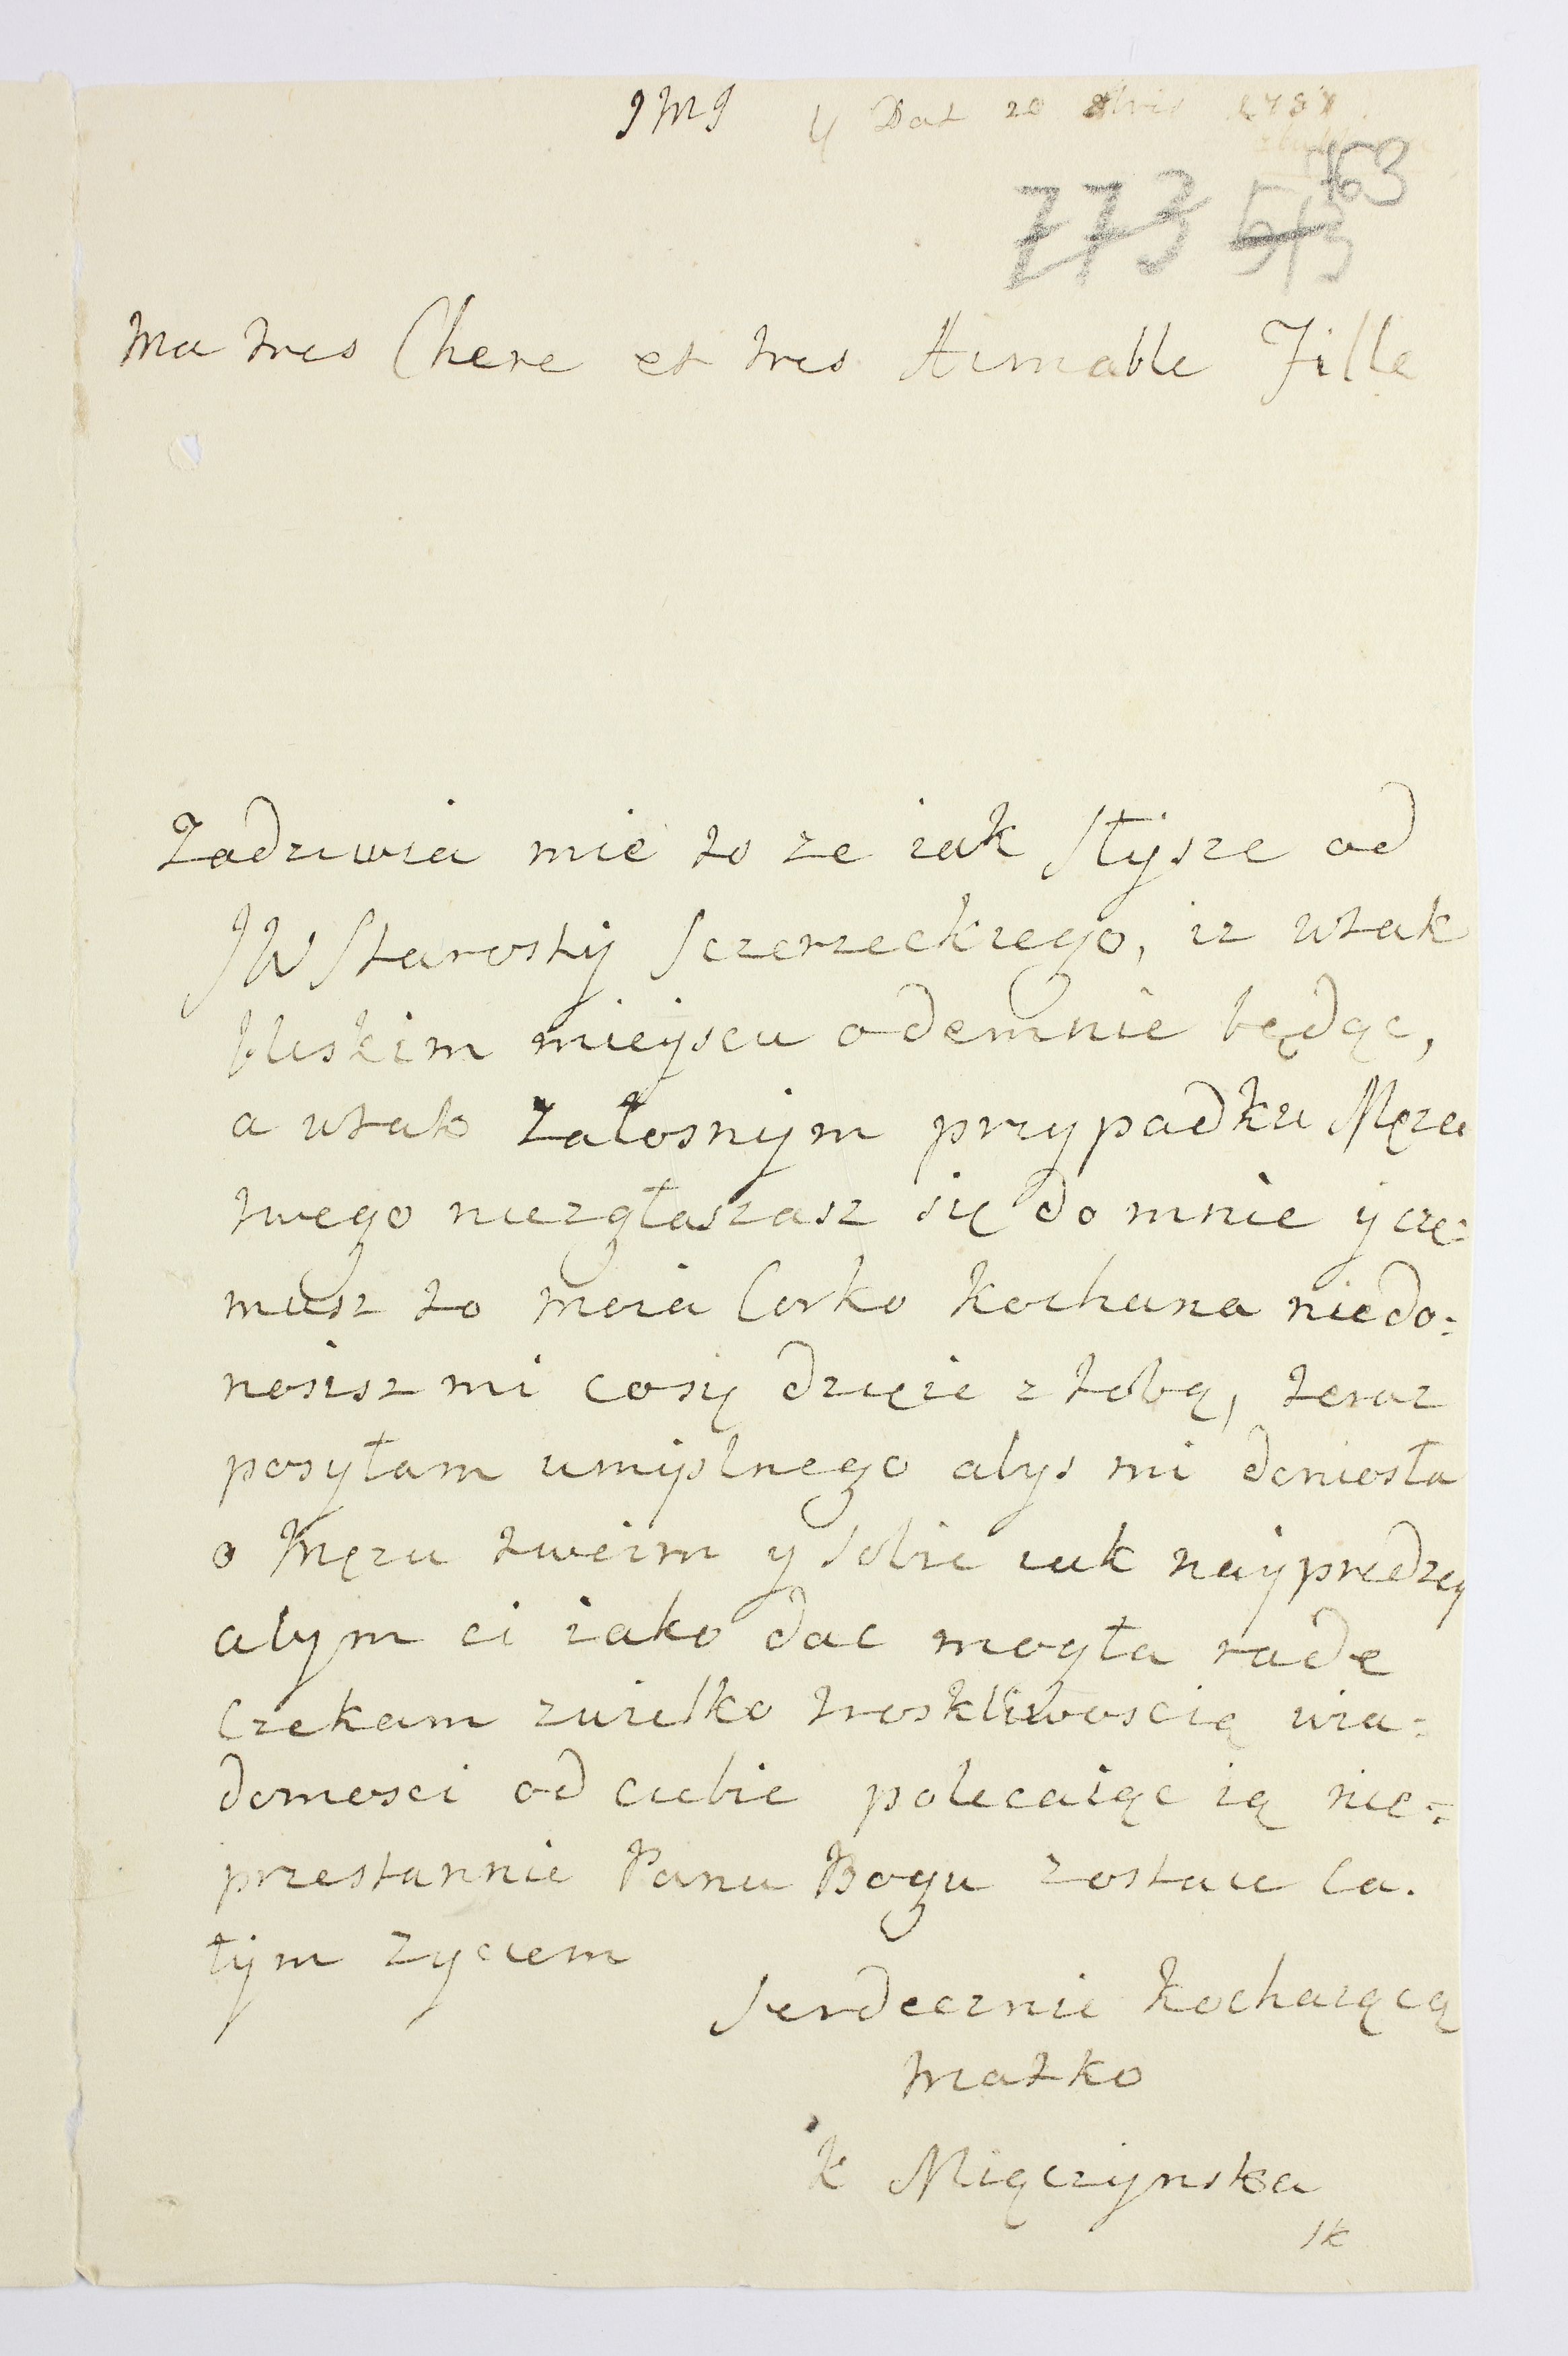 JMJ
Dat 20
773 513 163
Ma tres Chere et tres Aimable Fille
Zadziwia mie to ze iak Słysze od
JW Starosty Sczerzeckiego, iz wtak
bliskim mieyscu odemnie będąc,
a wtak Załosnym przypadku Męza
twego niezgłaszasz się do mnie y cze=
musz to moia Corko kochana niedo=
nosisz mi cosię dzięie z tobą, teraz
posyłam umyslnego abys mi doniosła
o Męzu twoim y sobie iak nayprędzey
abym ci iako dac mogła rade
Czekam zwielko troskliwoscią wia=
domosci od ciebie polecaiąc ią nie=
przestannie Panu Bogu zostaie Ca.
łym zyciem
Serdecznie kochaiącą
Matko
K Miączynska
SK